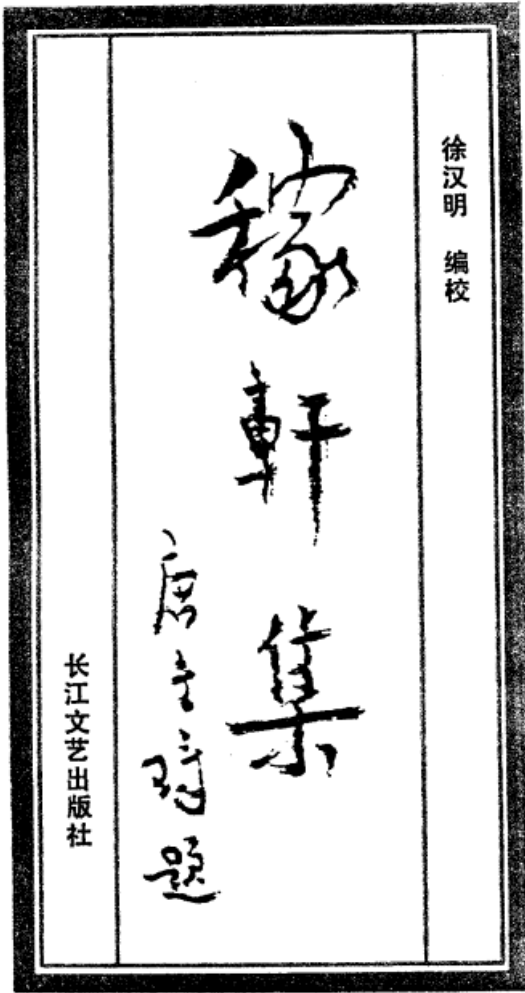 徐汉明 编校
稼軒集
唐圭璋题
长江文艺出版社